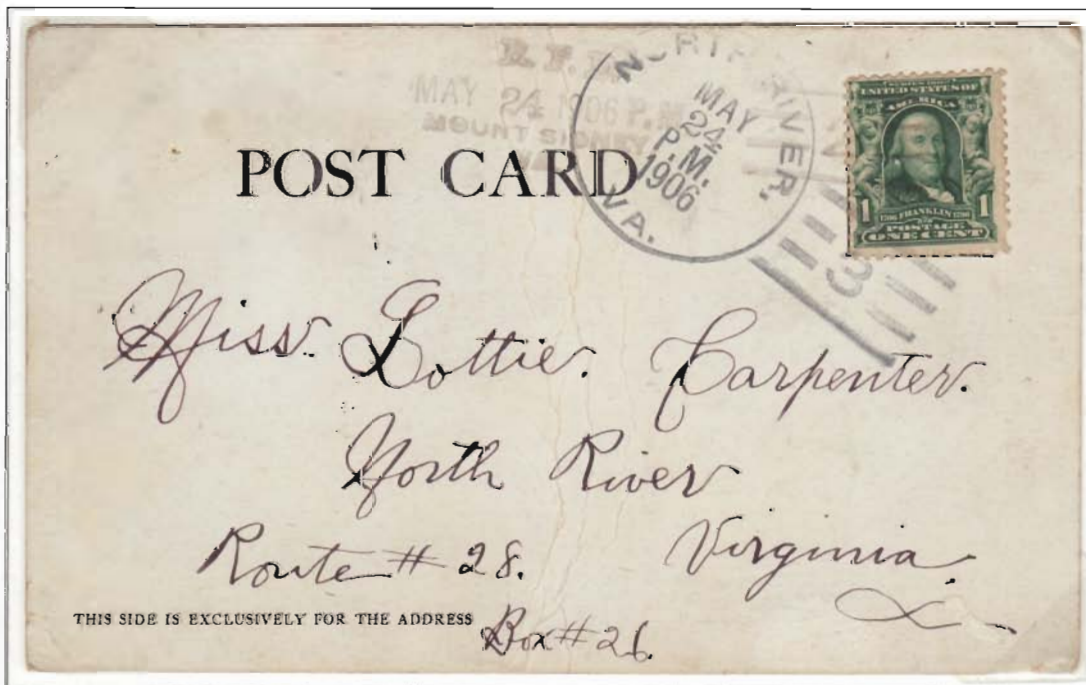 R. F. D.
MAY 24 1906 P.M.
MOUNT SIDNEY
NORTH RIVER,
MAY
24
P.M.
1906
VA.
3
SERIES 1902
UNITED STATES OF
AMERICA
1706 FRANKLIN 1790
1 1
POSTAGE
ONE CENT
POST CARD
Miss. Lottie. Carpenter.
North River
Route # 28. Virginia
THIS SIDE IS EXCLUSIVELY FOR THE ADDRESS
Box # 26.